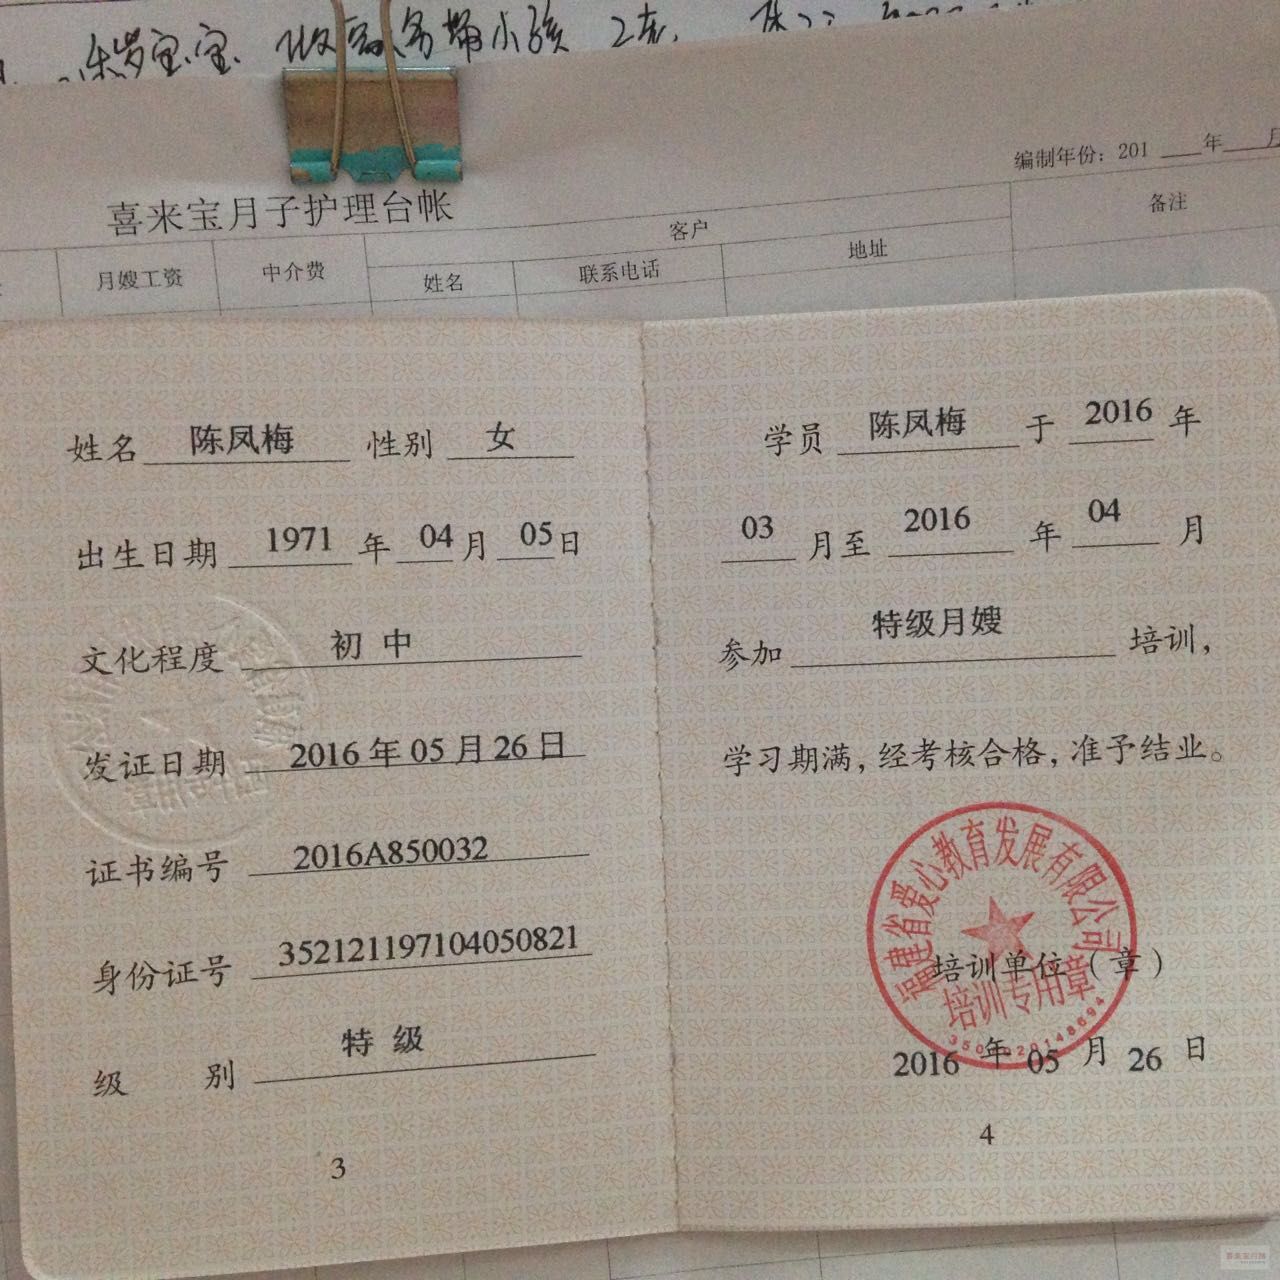 宝宝
带小孩
编制年份：201 年 月
喜来宝月子护理台帐
客户
备注
月嫂工资 中介费 姓名 联系电话 地址
姓名 陈凤梅 性别 女
出生日期 1971 年 04 月 05 日
文化程度 初中
发证日期 2016年05月26日
证书编号 2016A850032
身份证号 352121197104050821
级 别 特级
3
学员 陈凤梅 于 2016 年
03 月至 2016 年 04 月
参加 特级月嫂 培训，
学习期满，经考核合格，准予结业。
福建省爱心教育发展有限公司
培训单位（章）
培训专用章
2016 年 05 月 26 日
4